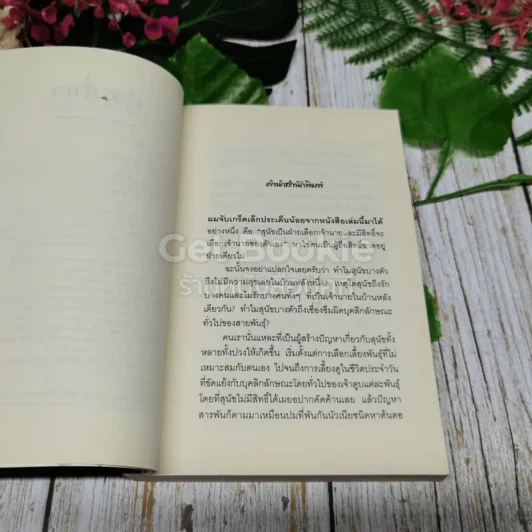 คำนำสำนักพิมพ์
ผมจับเกร็ดเล็กประเด็นน้อยจากหนังสือเล่มนี้มาได้
อย่างหนึ่ง คือ "สุนัขเป็นฝ่ายเลือกเจ้านาย และมีสิทธิ์จะ
เลือกเจ้านายของตัวเอง" หาใช่คนเป็นผู้ถือสิทธิ์ขาดอยู่
ฝ่ายเดียวไม่
Get Bookie
ฉะนั้นจงอย่าแปลกใจเลยครับว่า ทำไมสุนัขบางตัว
ถึงไม่มีความสุขเลยในบ้านหลังหนึ่ง เหตุใดสุนัขถึงรัก
ร้านหนังสือเก็ท
บางคนและไม่รักบางคนทั้งๆ ที่เป็นเจ้านายในบ้านหลัง
เดียวกัน? ทำไมสุนัขบางตัวถึงเชื่องซึมผิดบุคลิกลักษณะ
ทั่วไปของสายพันธุ์?
คนเรานั่นแหละที่เป็นผู้สร้างปัญหาเกี่ยวกับสุนัขทั้ง
หลายทั้งปวงให้เกิดขึ้น เริ่มตั้งแต่การเลือกเลี้ยงพันธุ์ที่ไม่
เหมาะสมกับตนเอง ไปจนถึงการเลี้ยงดูในชีวิตประจำวัน
ที่ขัดแย้งกับบุคลิกลักษณะโดยทั่วไปของเจ้าตูบแต่ละพันธุ์
โดยที่สุนัขไม่มีสิทธิ์ได้เผยอปากคัดค้านเลย แล้วปัญหา
สารพันก็ตามมาเหมือนปมที่พันกันนัวเนียชนิดหาต้นตอ